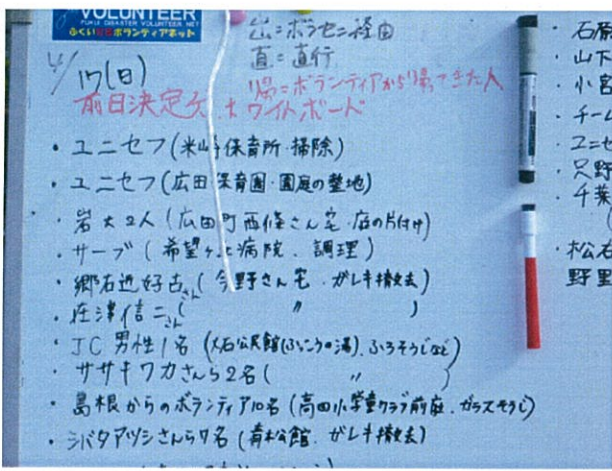 VOLUNTEER
FUKUI DISASTER VOLUNTEER NET
ふくい災害ボランティアネット
出=ボラセン経由
直=直行
帰=ボランティアから帰ってきた人
4/17(日)
前日決定ケ ホワイトボード
・ユニセフ(米崎保育所・掃除)
・ユニセフ(広田保育園・園庭の整地)
・岩大2人(広田町西條さん宅・庭の片付け)
・サーブ(希望ヶ丘病院、調理)
・郷右近好古さん(今野さん宅、ガレキ撤去)
・在津信二さん( 〃 )
・JC男性1名(大石公民館(ふっこうの湯)、ふろそうじなど)
・ササキワカさんら2名( 〃 )
・島根からのボランティア10名(高田小学童クラブ前庭、ガラスそうじ)
・シバタアツシさんら7名(青松館、ガレキ撤去)
・石原
・山下
・小宮
・チーム
・ユニセ
・只野
・千葉
(
・松石
野里